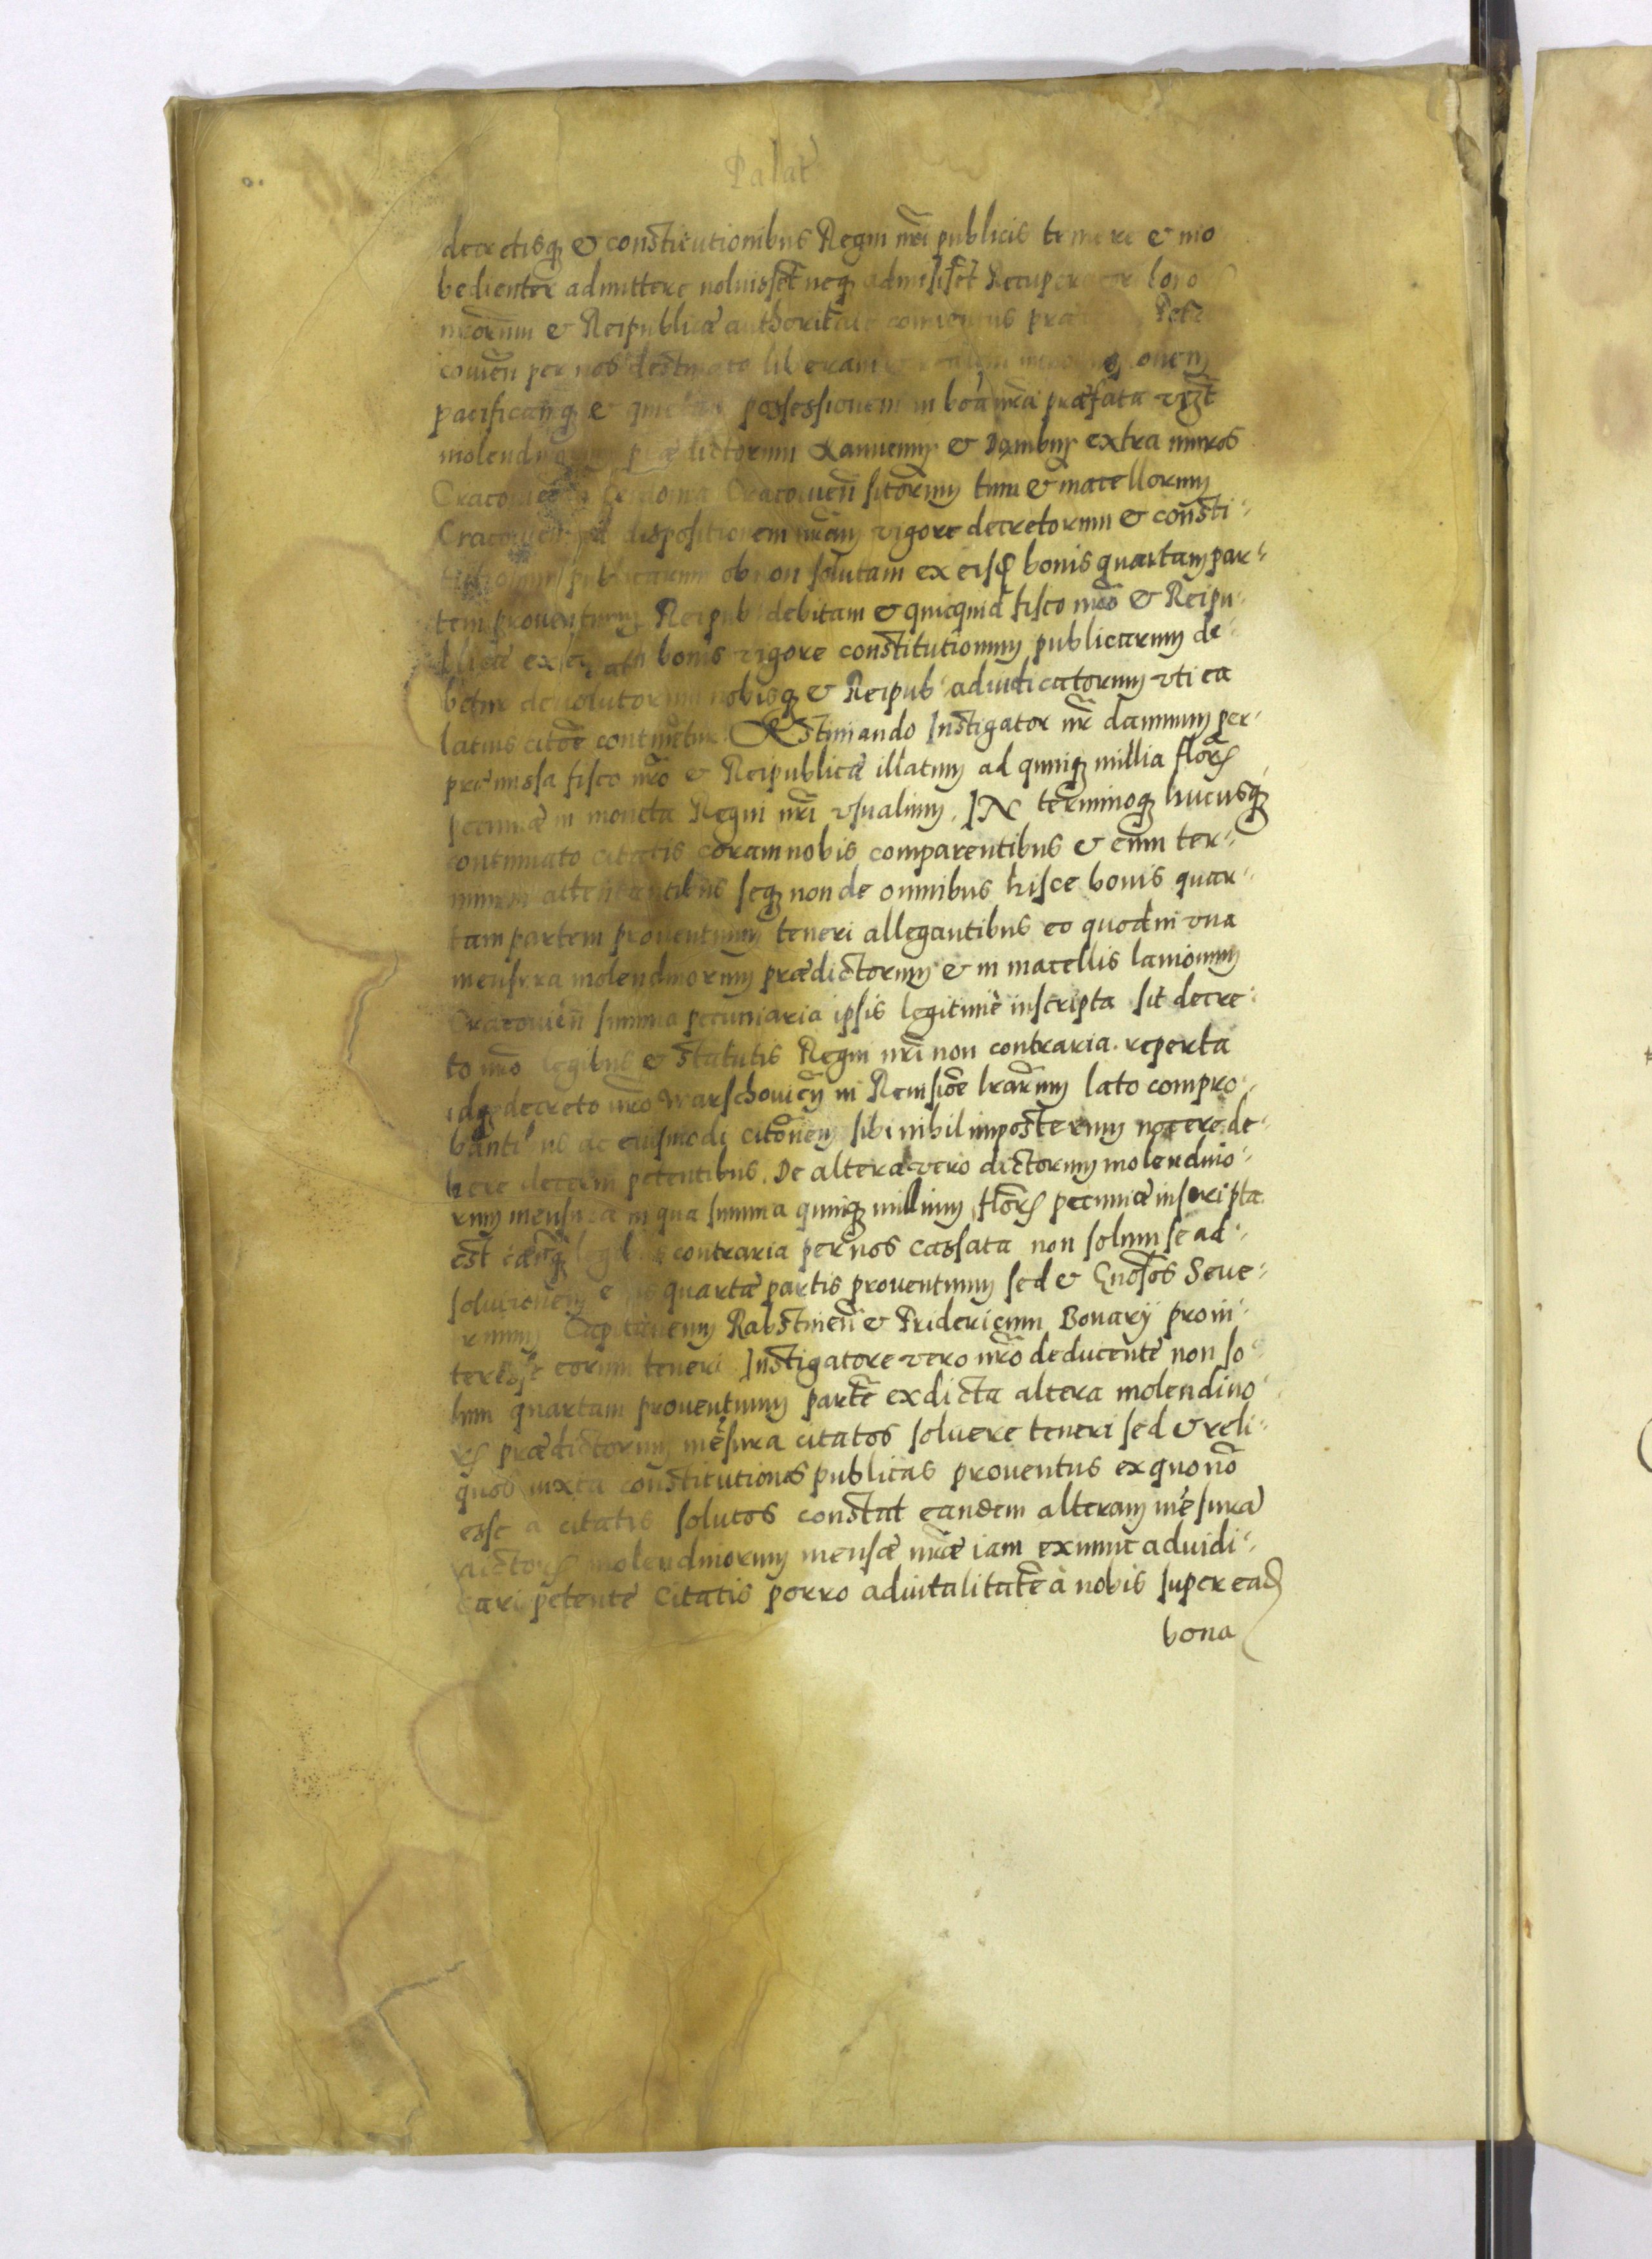 Palat
decretisq́ & constitutionibus Regni nr̃i publicis temere & ino
bedienter admittere noluissēt neq́ admisissēt Recuperator bono
nr̃orum & Reipublicæ authoritate
cowien̄ per nos destinato liberam
pacificamq́ & quietam possessionem in bona nr̃a præfata vigt̄
molendinorum prædictorum & Domibus extra muros
Cracovien̄ Cracovien̄ sitorum tum & macellorum
Cracovien̄ ad dispositionem nr̃am vigore decretorum & consti-
tutionum publicarum ob non solutam ex eisd̄ bonis quartam par-
tem proventuum Reipub debitam & quicquid fisco nr̃o & Reipu-
blicæ ex bonis vigore constitutionum publicarum de-
betur devolutorum nobisq́ & Reipub adiudicatorum vti ea
latius citōe continetur. Æstimando Instigator nr̃ damnum per
præmissa fisco nr̃o & Reipublicæ illatum ad quinq́ millia flor̃
pecuniæ in moneta Regni nr̃i vsualium. IN terminoq́ hucusq́
continuato citatis coram nobis comparentibus & eum ter-
minum attentantibus seq́ non de omnibus hisce bonis quar-
tam partem proventuum teneri allegantibus eo quod in vna
mensura molendinorum prædictorum & in macellis lanionum
Cracovien̄ summa pecuniaria ipsis legitimè inscripta sit decre-
to nr̃o legibus & statutis Regni nr̃i non contraria reperta
idq́ decreto nr̃o Warschovien̄ in Revisiōe lr̃arum lato compro-
banti ac eiusmodi citōnem sibi nihil imposterum nocere de-
bere decerni petentibus. De altera vero dictorum molendino-
rum mensura in qua summa quinq́ millium flor̃ pecuniæ inscripta
est tanq́ legibus contraria per nos cassata non solum se ad
solutionem quartæ partis proventuum sed & Gnōsos Seve-
rinum Capitaneum Rabstinen̄ & Fridericum Bonarÿ pro in-
teresse eorum teneri Instigatore vero nr̃o deducente non so-
lum quartam proventuum partē ex dicta altera molendino-
r̃ prædictorum mēsura citatos soluere teneri sed & reli-
quos iuxta constitutiones publicas proventus ex quo nō
esse a citatis solutos constat eandem alteram mēsurā
dictor̃ molendinorum mensæ nr̃æ iam ex nunc adiudi-
cari petente Citatis porro advitalitatē à nobis super ead̄
bona